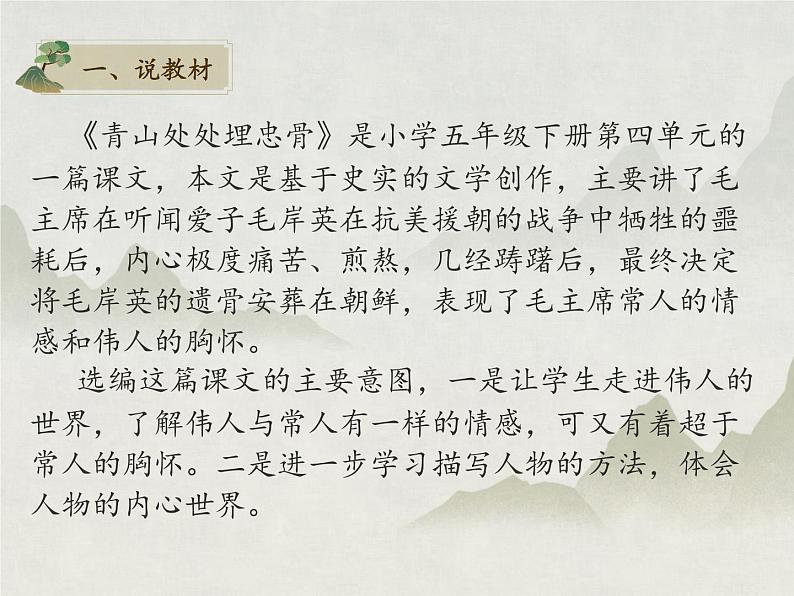 一、说教材
《青山处处埋忠骨》是小学五年级下册第四单元的
一篇课文，本文是基于史实的文学创作，主要讲了毛
主席在听闻爱子毛岸英在抗美援朝的战争中牺牲的噩
耗后，内心极度痛苦、煎熬，几经踌躇后，最终决定
将毛岸英的遗骨安葬在朝鲜，表现了毛主席常人的情
感和伟人的胸怀。
选编这篇课文的主要意图，一是让学生走进伟人的
世界，了解伟人与常人有一样的情感，可又有着超于
常人的胸怀。二是进一步学习描写人物的方法，体会
人物的内心世界。